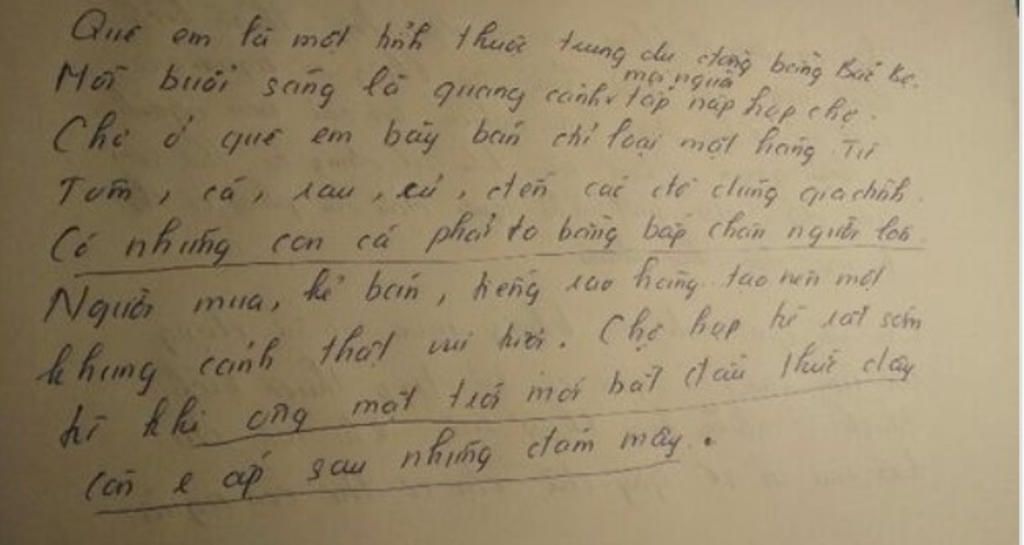 Quê em là một tỉnh thuộc trung du đồng bằng Bắt Bộ.
Mỗi buổi sáng là quang cảnh mọi người tấp nập họp chợ.
Chợ ở quê em bày bán chỉ loại mặt hàng. Từ
Tôm, cá, rau, củ, đến các đồ dùng gia đình.
Có những con cá phải to bằng bắp chân người lớn.
Người mua, kẻ bán, tiếng rao hàng tạo nên một
khung cảnh thật vui tươi. Chợ họp từ rất sớm
từ khi ông mặt trời mới bắt đầu thức dậy
còn e ấp sau những đám mây.